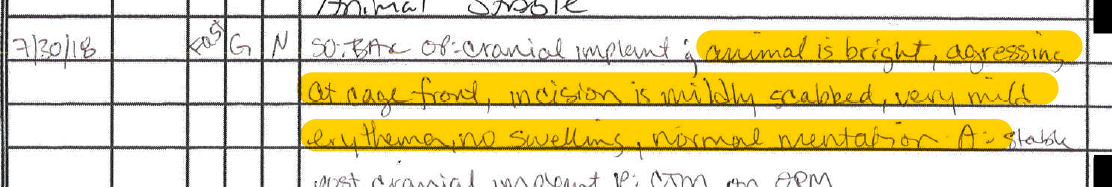 Animal Stable
7/30/18 Fast G N SO: BAR OP: cranial implant ; animal is bright, agressing
at cage front, incision is mildly scabbed, very mild
erythema, no swelling, normal mentation A: stable
post cranial implant P: CTM on OPM